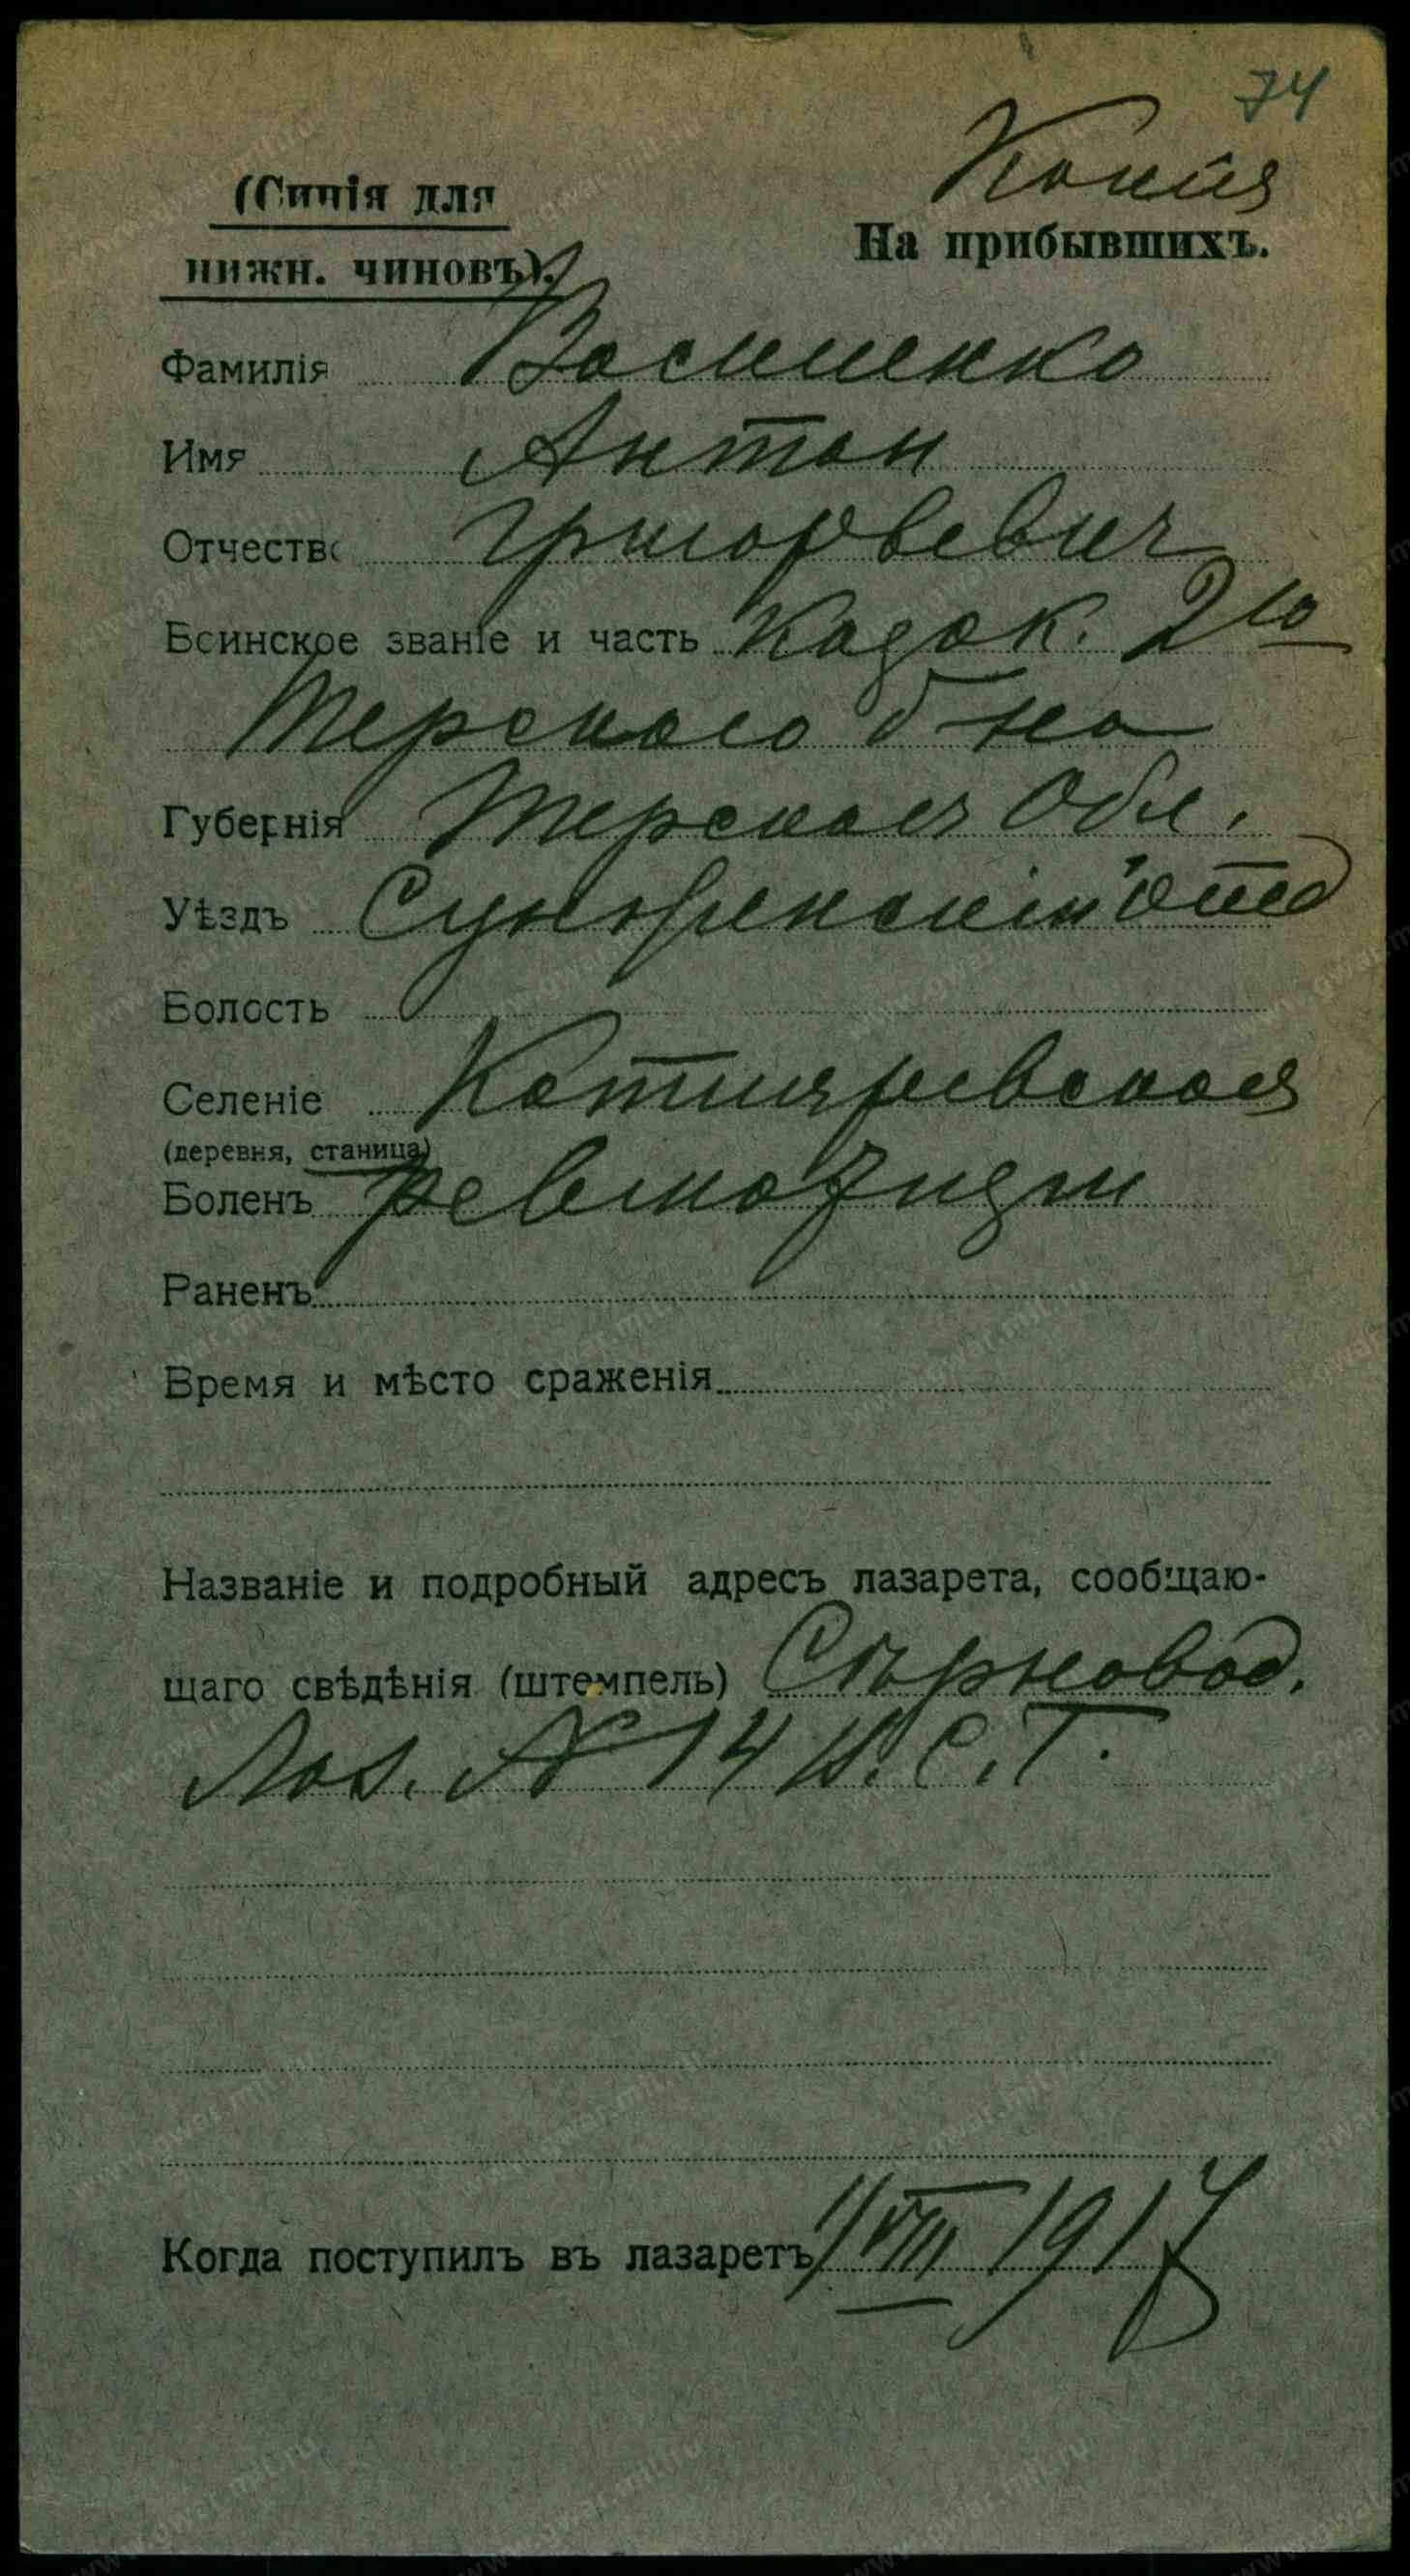 74
Копія
(Синія для
На прибывшихъ.
нижн. чиновъ).
Фамилія Василенко
Имя Антон
Отчество Григорьевич
Воинское званіе и часть Казак. 2го
Терскаго б-на
Губернія Терская Обл.
Уѣздъ Сунженскій отд
Волость
Селеніе Котляревская
(деревня, станица)
Боленъ Ревматизм
Раненъ
Время и мѣсто сраженія
Названіе и подробный адресъ лазарета, сообщаю-
щаго свѣдѣнія (штемпель) Сѣрновод.
Лаз. № 14 В. С. Г.
Когда поступилъ въ лазаретъ 1/VIII 1917